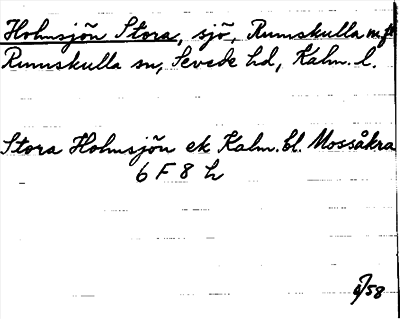 Holmsjön Stora, sjö, Rumskulla
Rumskulla sn, Sevede hd, Kalm. l.
Stora Holmsjön ek Kalm. bl. Mossåkra
6 F 8 h
/58